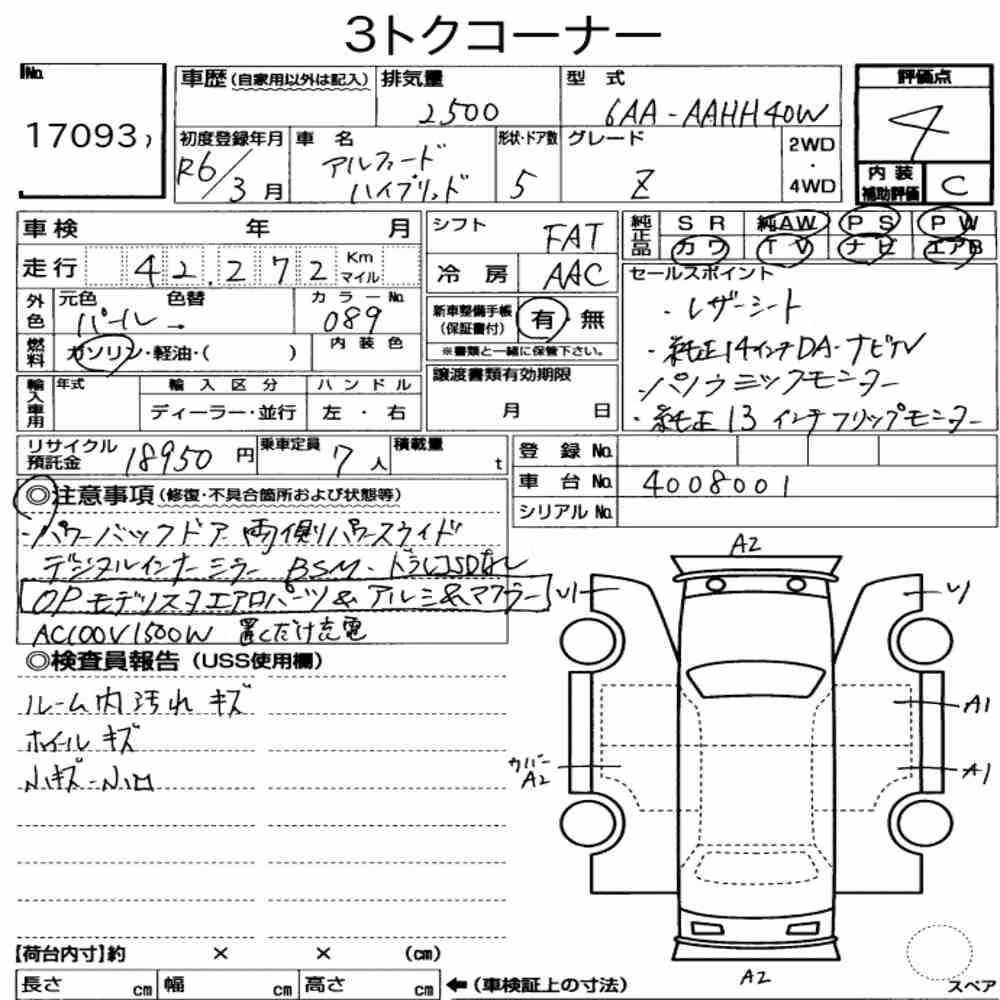 3トクコーナー
No.
17093
車歴 (自家用以外は記入)
排気量
2500
型式
6AA-AAHH40W
評価点
4
初度登録年月
R6/3月
車名
アルファード
ハイブリッド
形状・ドア数
5
グレード
Z
2WD
・
4WD
内装
補助評価
C
車検 年 月
走行 42.272 Km
マイル
シフト
FAT
冷房 AAC
純正品
SR 純AW PS PW
カワ TV ナビ エアB
外色
元色 色替
パール→
カラーNo.
089
燃料
ガソリン・軽油・( )
内装色
新車整備手帳
(保証書付)
有 無
※書類と一緒に保管下さい。
セールスポイント
・レザーシート
・純正14インチDA-ナビTV
・パノラミックモニター
・純正13インチフリップモニター
輸入車用
年式
輸入区分
ディーラー・並行
ハンドル
左・右
譲渡書類有効期限
月 日
リサイクル
預託金 18950円
乗車定員
7人
積載量
t
登録No.
車台No. 4008001
シリアルNo.
◎注意事項(修復・不具合箇所および状態等)
・パワーバックドア 両側パワースライド
デジタルインナーミラー BSM・ドラレコSDなし
OPモデリスタエアロパーツ&アルミ&マフラー
AC100V1500W 置くだけ充電
◎検査員報告(USS使用欄)
ルーム内汚れ キズ
ホイルキズ
小キズ-小凹
A2
U1
U1
A1
カバー
A2
A1
A2
【荷台内寸】約 × × (cm)
長さ cm 幅 cm 高さ cm ←(車検証上の寸法)
スペア